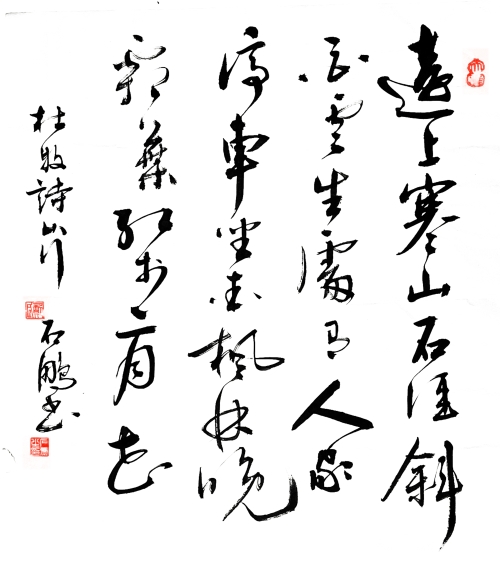 遠上寒山石徑斜
白雲生處有人家
停車坐愛楓林晚
霜葉紅於二月花
杜牧詩山行 石鵬書